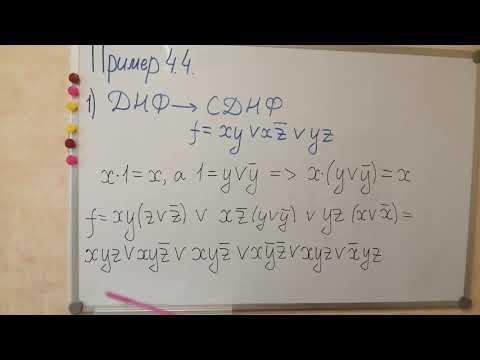 Пример 4.4.
1) ДНФ → СДНФ
f = xy ∨ xz̅ ∨ yz
x·1 = x, а 1 = y ∨ y̅ => x·(y ∨ y̅) = x
f = xy(z ∨ z̅) ∨ xz̅(y ∨ y̅) ∨ yz(x ∨ x̅) =
xyz ∨ xyz̅ ∨ xyz̅ ∨ xy̅z̅ ∨ xyz ∨ x̅yz